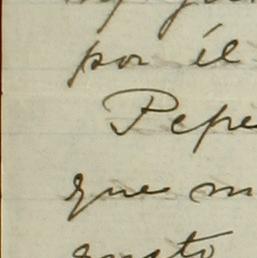 por él
Pepe
que m
gusto